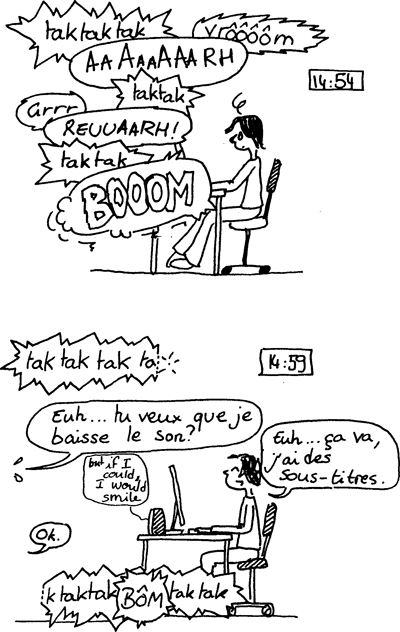 taktaktak
vrôôôôm
AAAAAAAAARH
14:54
taktak
Grrr
REUUAARH!
taktak
BOOOM
tak tak tak ta
14:59
Euh... tu veux que je
baisse le son?
Euh... ça va,
j'ai des
sous-titres.
but if I
could,
I would
smile
Ok.
k taktak
BÔM
tak tak